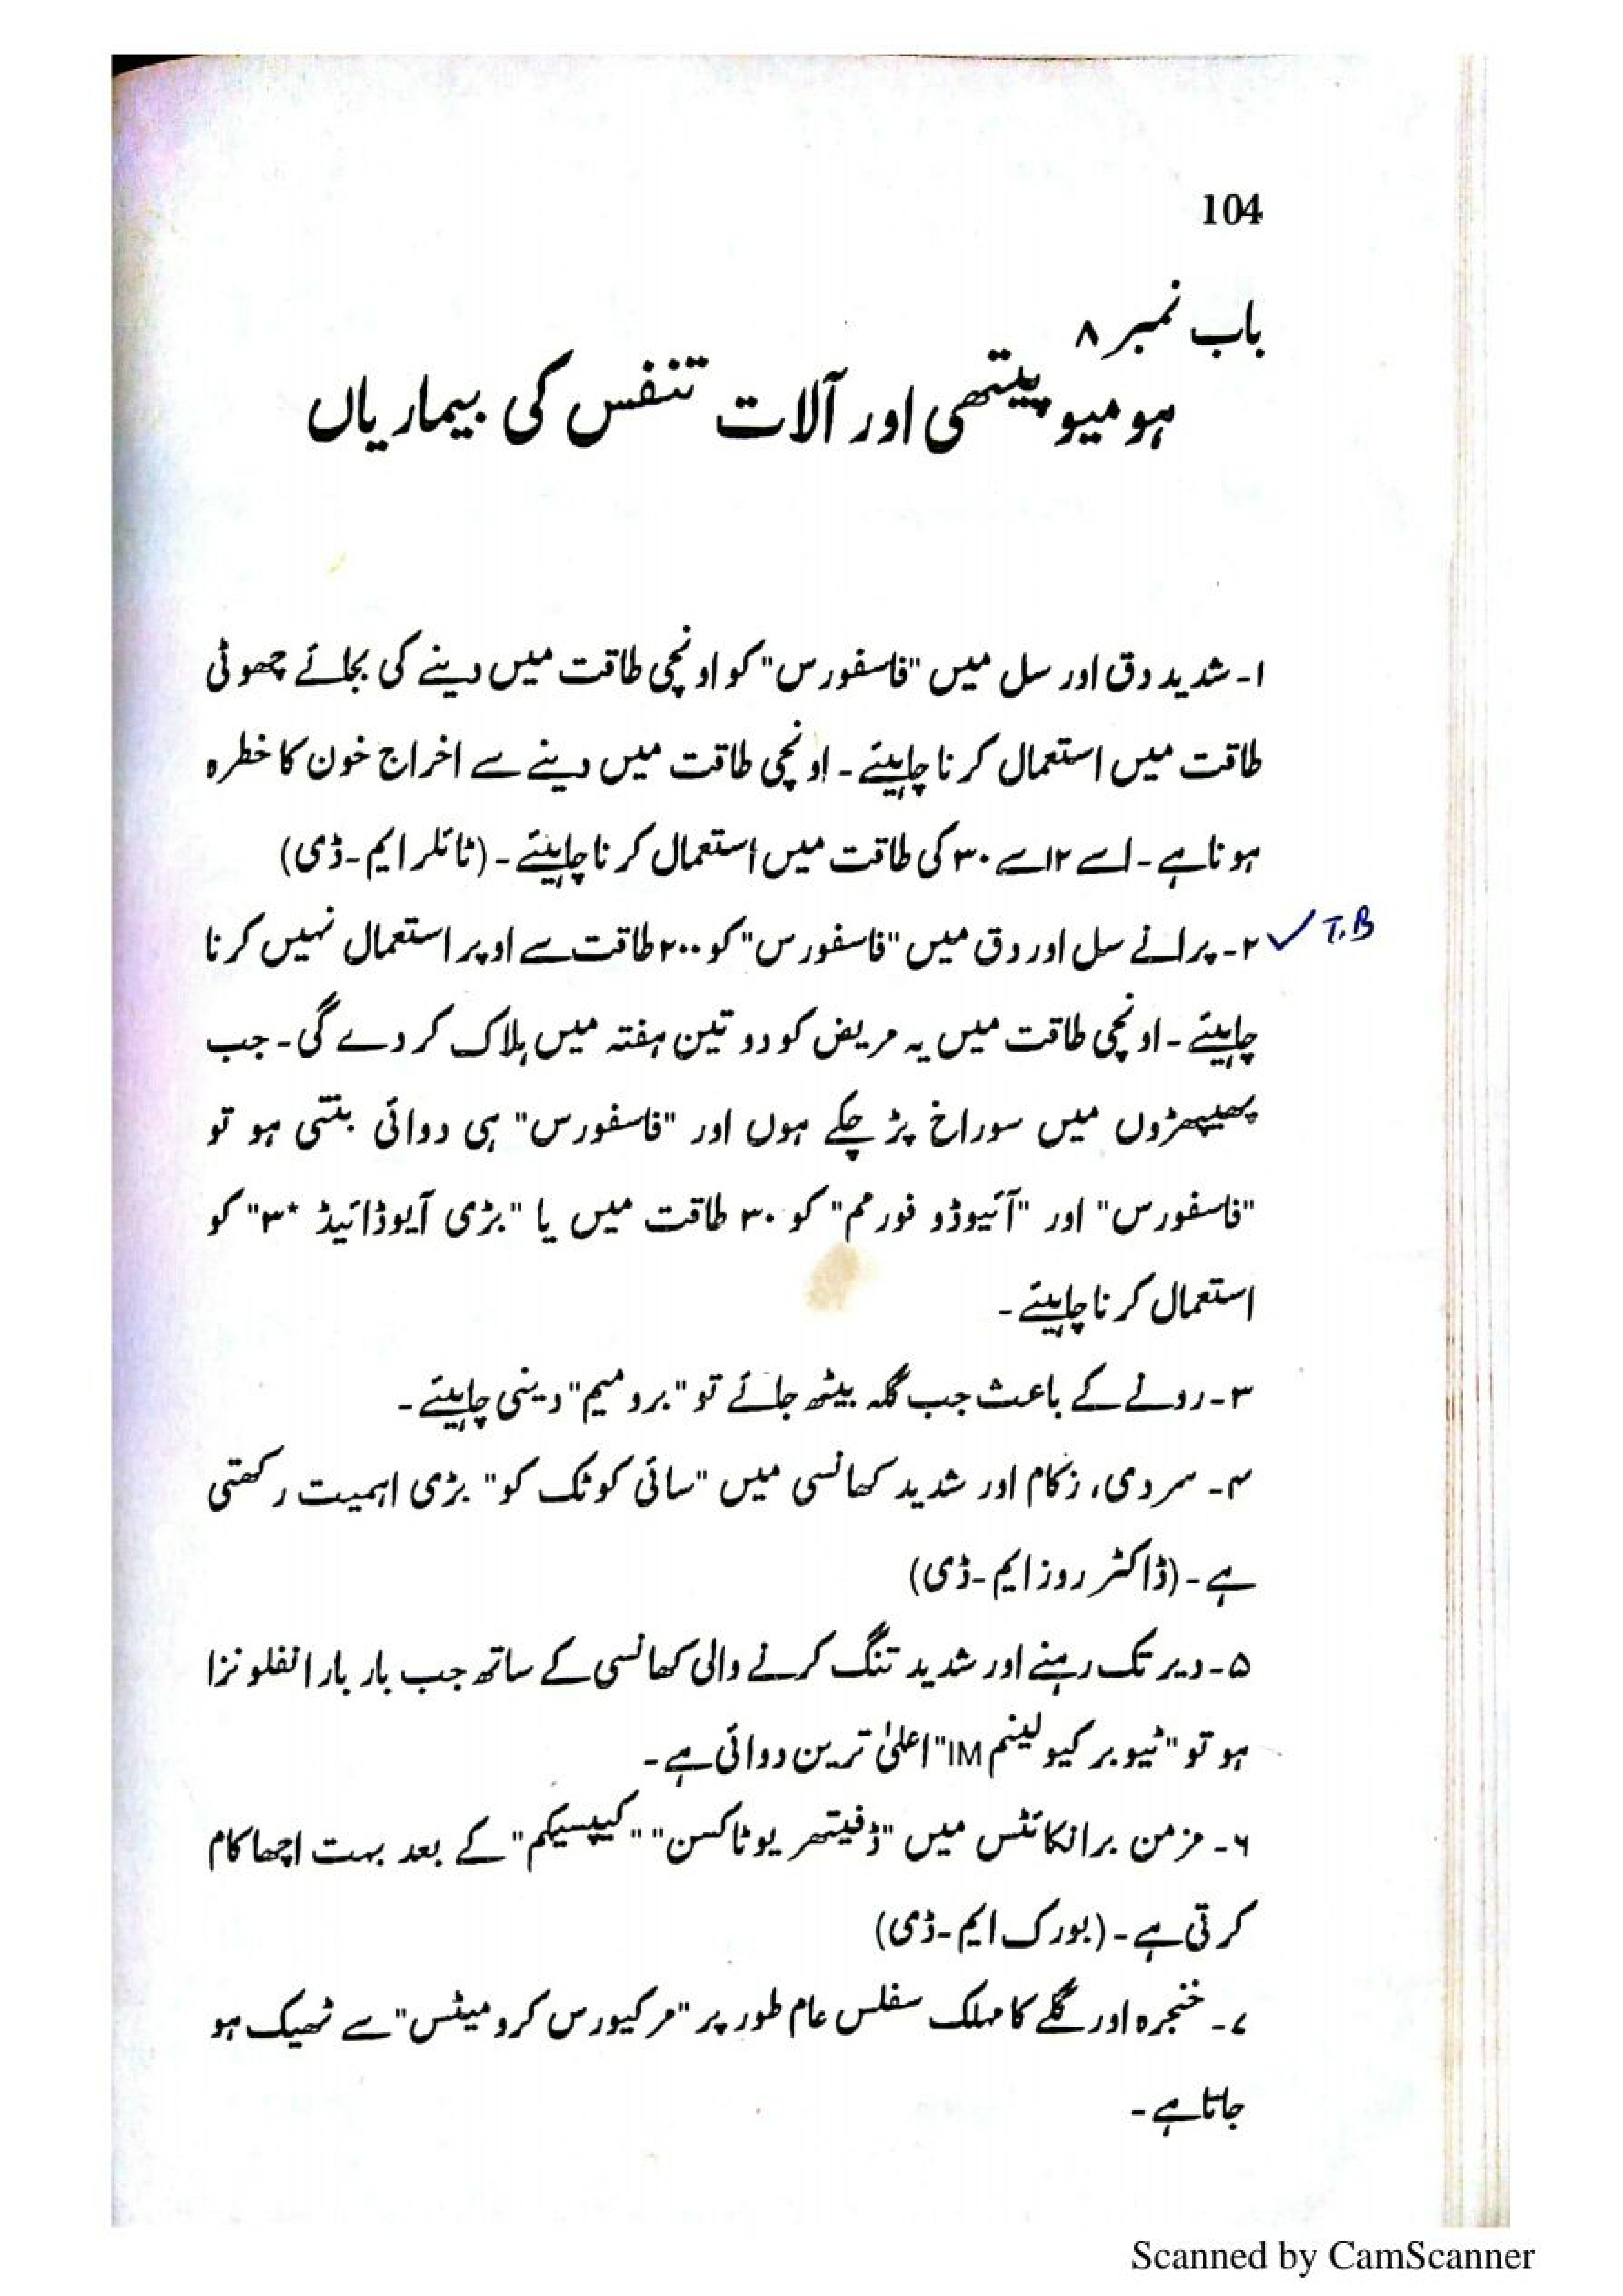 104
باب نمبر ۸
ہومیو پیتھی اور آلات تنفس کی بیماریاں
۱۔ شدید دق اور سل میں "فاسفورس" کو اونچی طاقت میں دینے کی بجائے چھوٹی
طاقت میں استعمال کرنا چاہیئے۔ اونچی طاقت میں دینے سے اخراج خون کا خطرہ
ہوتا ہے۔ اسے ۱۲ سے ۳۰ کی طاقت میں استعمال کرنا چاہیئے۔ (ٹائلر ایم۔ڈی)
۲۔ پرانے سل اور دق میں "فاسفورس" کو ۲۰۰ طاقت سے اوپر استعمال نہیں کرنا
✓ T.B
چاہیئے۔ اونچی طاقت میں یہ مریض کو دو تین ہفتہ میں ہلاک کر دے گی۔ جب
پھیپھڑوں میں سوراخ پڑ چکے ہوں اور "فاسفورس" ہی دوائی بنتی ہو تو
"فاسفورس" اور "آئیوڈو فورمم" کو ۳۰ طاقت میں یا "بڑی آیوڈائیڈ *۳" کو
استعمال کرنا چاہیئے۔
۳۔ رونے کے باعث جب گلہ بیٹھ جائے تو "برومیم" دینی چاہیئے۔
۴۔ سردی، زکام اور شدید کھانسی میں "سائی کوٹک کو" بڑی اہمیت رکھتی
ہے۔ (ڈاکٹر روز ایم۔ڈی)
۵۔ دیر تک رہنے اور شدید تنگ کرنے والی کھانسی کے ساتھ جب بار بار انفلونزا
ہو تو "ٹیوبر کیولینم IM" اعلیٰ ترین دوائی ہے۔
۶۔ مزمن برانکائٹس میں "ڈفیتھریوٹاکسن" "کیپسیکم" کے بعد بہت اچھا کام
کرتی ہے۔ (بورک ایم۔ڈی)
۷۔ خنجرہ اور گلے کا مہلک سفلس عام طور پر "مرکیورس کرومیٹس" سے ٹھیک ہو
جاتا ہے۔
Scanned by CamScanner